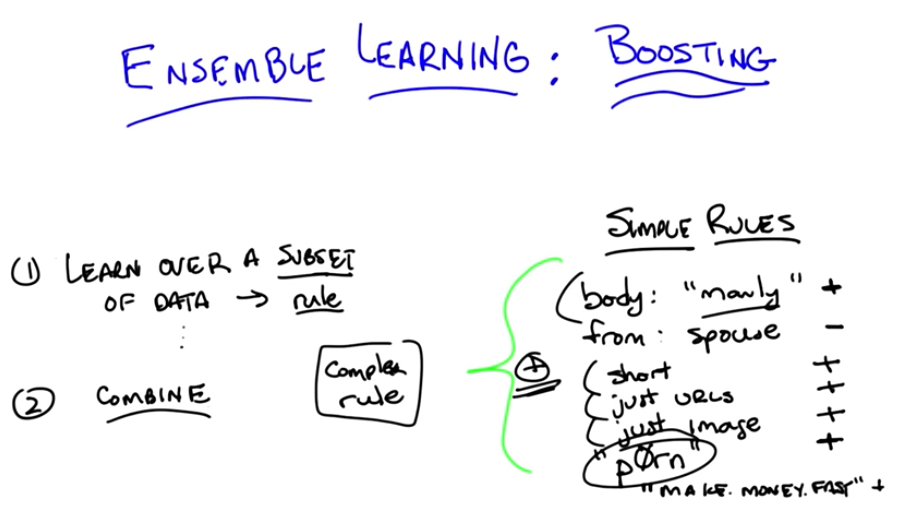 ENSEMBLE LEARNING: BOOSTING
SIMPLE RULES
① LEARN OVER A SUBSET
OF DATA → rule
⋮
② COMBINE
complex
rule
+
body: "manly" +
from: spouse -
short +
just URLs +
just image +
"pØrn" +
"MAKE.MONEY.FAST" +